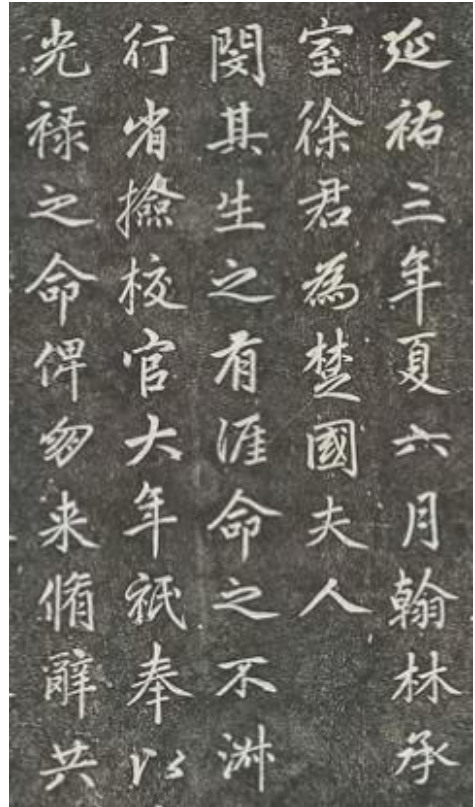 延祐三年夏六月翰林承
室徐君為楚國夫人
閔其生之有涯命之不淋
行省撿校官大年祇奉以
光禄之命俾勿来脩辭共